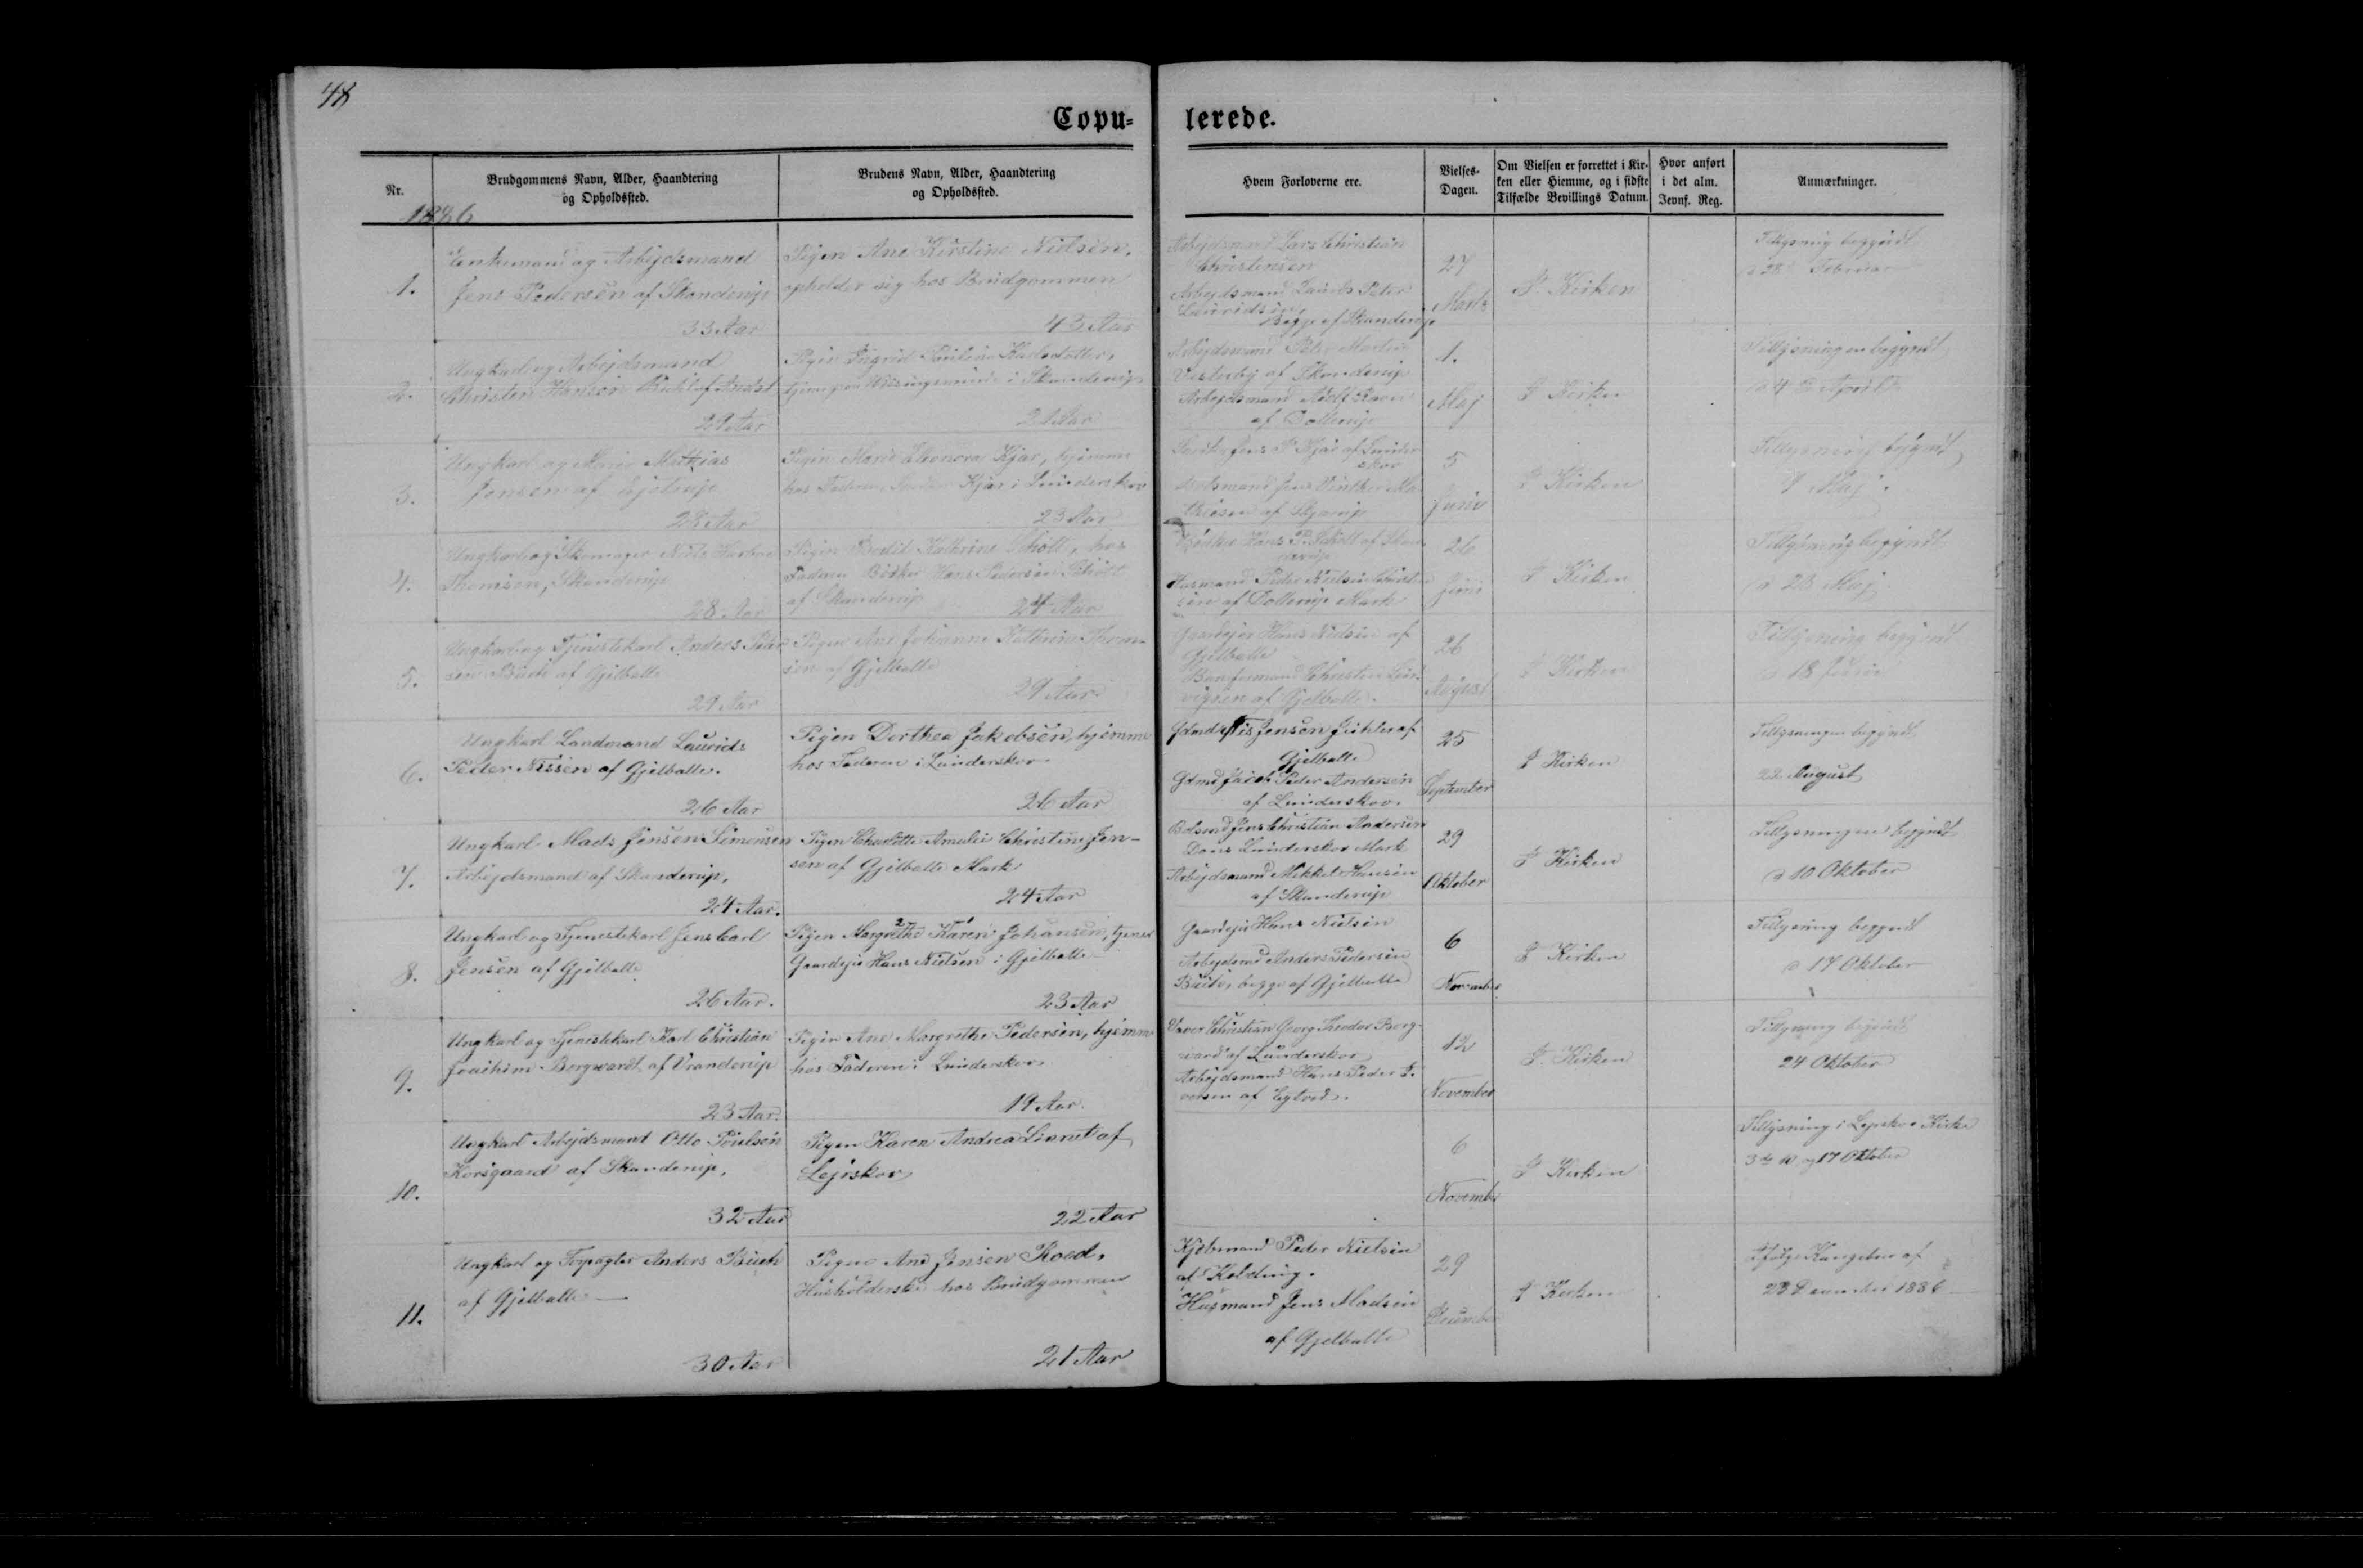 48
Copu=
lerede.
Nr.
Brudgommens Navn, Alder, Haandtering
og Opholdssted.
Brudens Navn, Alder, Haandtering
og Opholdssted.
Hvem Forloverne ere.
Vielses-
Dagen.
Om Vielsen er forrettet i Kir-
ken eller Hiemme, og i sidste
Tilfælde Bevillings Datum.
Hvor anført
i det alm.
Jevnf. Reg.
Anmærkninger.
1886
1.
Enkemand og Arbejdsmand
Jens Pedersen af Skanderup
33 Aar
Pigen Ane Kirstine Nielsen,
opholder sig hos Brudgommen
43 Aar
Arbejdsmand Lars Christian
Christensen
Arbejdsmand Laurits Peter
Lauridsen
Begge af Skanderup
27
Marts
I Kirken
Tillysning begyndt
28 Februar
2.
Ungkarl og Arbejdsmand
Christen Hansen Buhl af Andst
29 Aar
Pigen Ingrid Pauline Karlsdotter,
tjener paa i Skanderup
21 Aar
Arbejdsmand Peter Martin
Vesterby af Skanderup
Arbejdsmand Adolf Ravn
af Dollerup
1.
Maj
I Kirken
Tillysningen begyndt
4 April
3.
Ungkarl og Murer Mathias
Jensen af
28 Aar
Pigen Marie Eleonora Kjær, hjemme
hos Faderen, Kjær i Lunderskov
23 Aar
Jens P. Kjær af Lunder
skov
Bolsmand Jens Winther Ma-
thiesen af
5
Juni
I Kirken
Tillysning begyndt
9 Maj.
4.
Ungkarl og Skomager Niels
Thomsen, Skanderup
28 Aar
Pigen Bodil Kathrine Schött, hos
Faderen Bødker Hans Pedersen Schött
af Skanderup
24 Aar
Bødker Hans P. Schött af Skan-
derup
Husmand Peder Nielsen
af Dollerup Mark
26
Juni
I Kirken
Tillysning begyndt
23 Maj
5.
Ungkarl og Tjenestekarl Anders Peder
sen Buch af Gjelballe
29 Aar
Pigen Ane Johanne Kathrine Thom-
sen af Gjelballe
29 Aar
Gaardejer Hans Nielsen af
Gjelballe
Christen
af Gjelballe.
26
August
I Kirken
Tillysning begyndt
18
6.
Ungkarl Landmand Laurids
Peder Nissen af Gjelballe.
26 Aar
Pigen Dorthea Jakobsen, hjemme
hos Faderen i Lunderskov
26 Aar
Gdmd Nis Jensen Juhler af
Gjelballe
Gdmd Jacob Peder Andersen
af Lunderskov.
25
September
I Kirken
Tillysningen begyndt
22 August
7.
Ungkarl Mads Jensen Simonsen
Arbejdsmand af Skanderup,
24 Aar.
Pigen Charlotte Amalie Christine Jen-
sen af Gjelballe Mark
24 Aar
Bolsmd Jens Christian Andersen
Dons Lunderskov Mark
Arbejdsmand Mikkel Hansen
af Skanderup
29
Oktober
I Kirken
Tillysningen begyndt
10 Oktober
8.
Ungkarl og Tjenestekarl Jens Carl
Jensen af Gjelballe
26 Aar.
2 1
Pigen Margrethe Karen Johansen, tjener
Gaardejer Hans Nielsen i Gjelballe
23 Aar
Gaardejer Hans Nielsen
Arbejdsmd Anders Pedersen
Buch, begge af Gjelballe
6
November
I Kirken
Tillysning begyndt
17 Oktober
9.
Ungkarl og Tjenestekarl Karl Christian
Joachim Borgwardt af Vranderup
23 Aar.
Pigen Ane Margrethe Pedersen, hjemme
hos Faderen i Lunderskov
19 Aar.
Væver Christian Georg Theodor Borg-
ward af Lunderskov
Arbejdsmand Hans Peder I-
versen af Egtved.
12
November
I Kirken
Tillysning begyndt
24 Oktober
10.
Ungkarl Arbejdsmand Otto Poulsen
Korsgaard af Skanderup,
32 Aar
Pigen Karen Andrea Linnet af
Lejrskov
22 Aar
6
November
I Kirken
Tillysning i Lejrskov Kirke
3die 10 og 17 Oktober
11.
Ungkarl og Forpagter Anders Buch
af Gjelballe —
30 Aar
Pigen Ane Jensen Koed,
Husholderske hos Brudgommen
21 Aar
Kjøbmand Peder Nielsen
af Kolding.
Husmand Jens Madsen
af Gjelballe
29
December
I Kirken
Ifølge Kongebrev af
23 December 1886